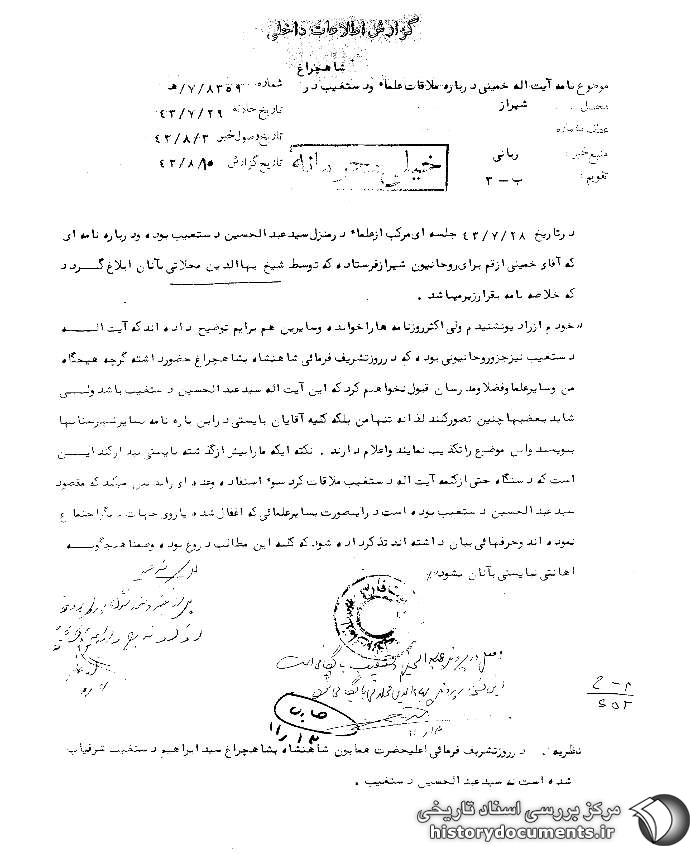 گزارش اطلاعات داخلی
شاهچراغ
موضوع نامه آیت اله خمینی درباره ملاقات علماء ودستغیب در
شماره ۸۳۵۹/۷/هـ
محل شیراز
تاریخ حادثه ۴۳/۷/۲۹
عطف بشماره
تاریخ وصول خبر ۴۳/۸/۳
منبع خبر : ربانی
تاریخ گزارش
تقویم : ب – ۳
خیلی محرمانه
درتاریخ ۴۳/۷/۲۸ جلسه ای مرکب ازعلماء درمنزل سیدعبدالحسین دستغیب بوده ودرباره نامه ای
که آقای خمینی ازقم برای روحانیون شیرازفرستاده که توسط شیخ بهاالدین محلاتی بآنان ابلاغ گردد
که خلاصه نامه بقرارزیرمیباشد .
« خودم ازرادیونشنیدم ولی اکثرروزنامه هاراخوانده وسایرین هم برایم توضیح داده اندکه آیت الــــه
دستغیب نیزجزوروحانیونی بوده که درروزتشریف فرمائی شاهنشاه بشاهچراغ حضورداشته گرچه هیچگاه
من وسایرعلماوفضلاومدرسان قبول نخواهیم کردکه این آیت اله سیدعبدالحسین دستغیب باشد ولــی
شاید بعضیهاچنین تصورکنند لذا نه تنهامن بلکه کلیه آقایان بایستی دراین باره نامه بسایرشهرستانها
بنویسند واین موضوع راتکذیب نمایند واعلام دارند . نکته ایکه مارابیش ازگذشته بایستی بیدارکند ایــن
است که دستگاه حتی ازکلمه آیت اله دستغیب ملاقات کرد سوء استفاده وعده ای میکند که مقصود
سیدعبدالحسین دستغیب بوده است دراینصورت بسایرعلمائی که اغفال شده یاروی جهات دیگراجتماع
نموده اند وحرفهائی بیان داشته اند تذکرداده شود که کلیه این مطالب دروغ بوده وضمنا هیچگونــه
اهانتی نبایستی بآنان بشود »
اصل در پرونده عبدالحسین دستغیب بایگانی است
۱۱/۱۳
نظریه : درروزتشریف فرمائی اعلیحضرت همایون شاهنشاه بشاهچراغ سیدابراهیم دستغیب شرفیاب
شده است نه سیدعبدالحسین دستغیب .
مرکز بررسی اسناد تاریخی
historydocuments.ir